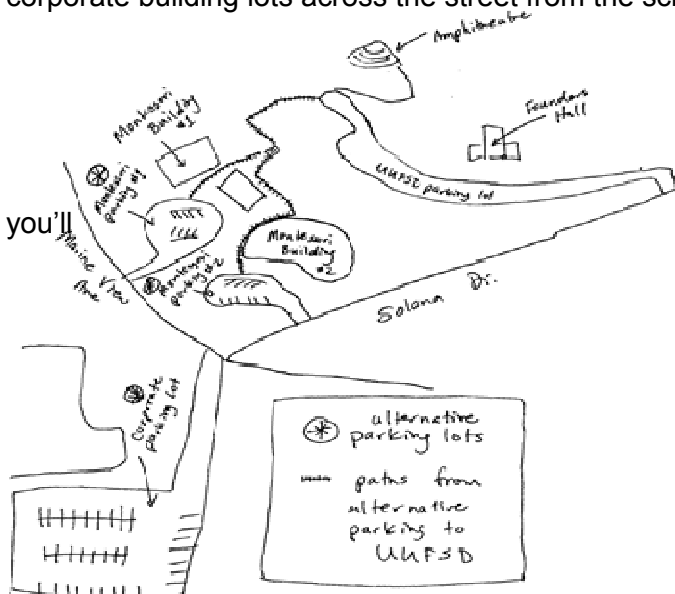 corporate building lots across the street from the sc
Amphitheatre
Founders
Hall
Montessori
Building
#1
Montessori
parking #1
UUFSD parking lot
you'll
Montessori
Building
#2
Marine View
Ave
Montessori
parking #2
Solana Dr.
Corporate
parking lot
alternative
parking lots
paths from
alternative
parking to
UUFSD